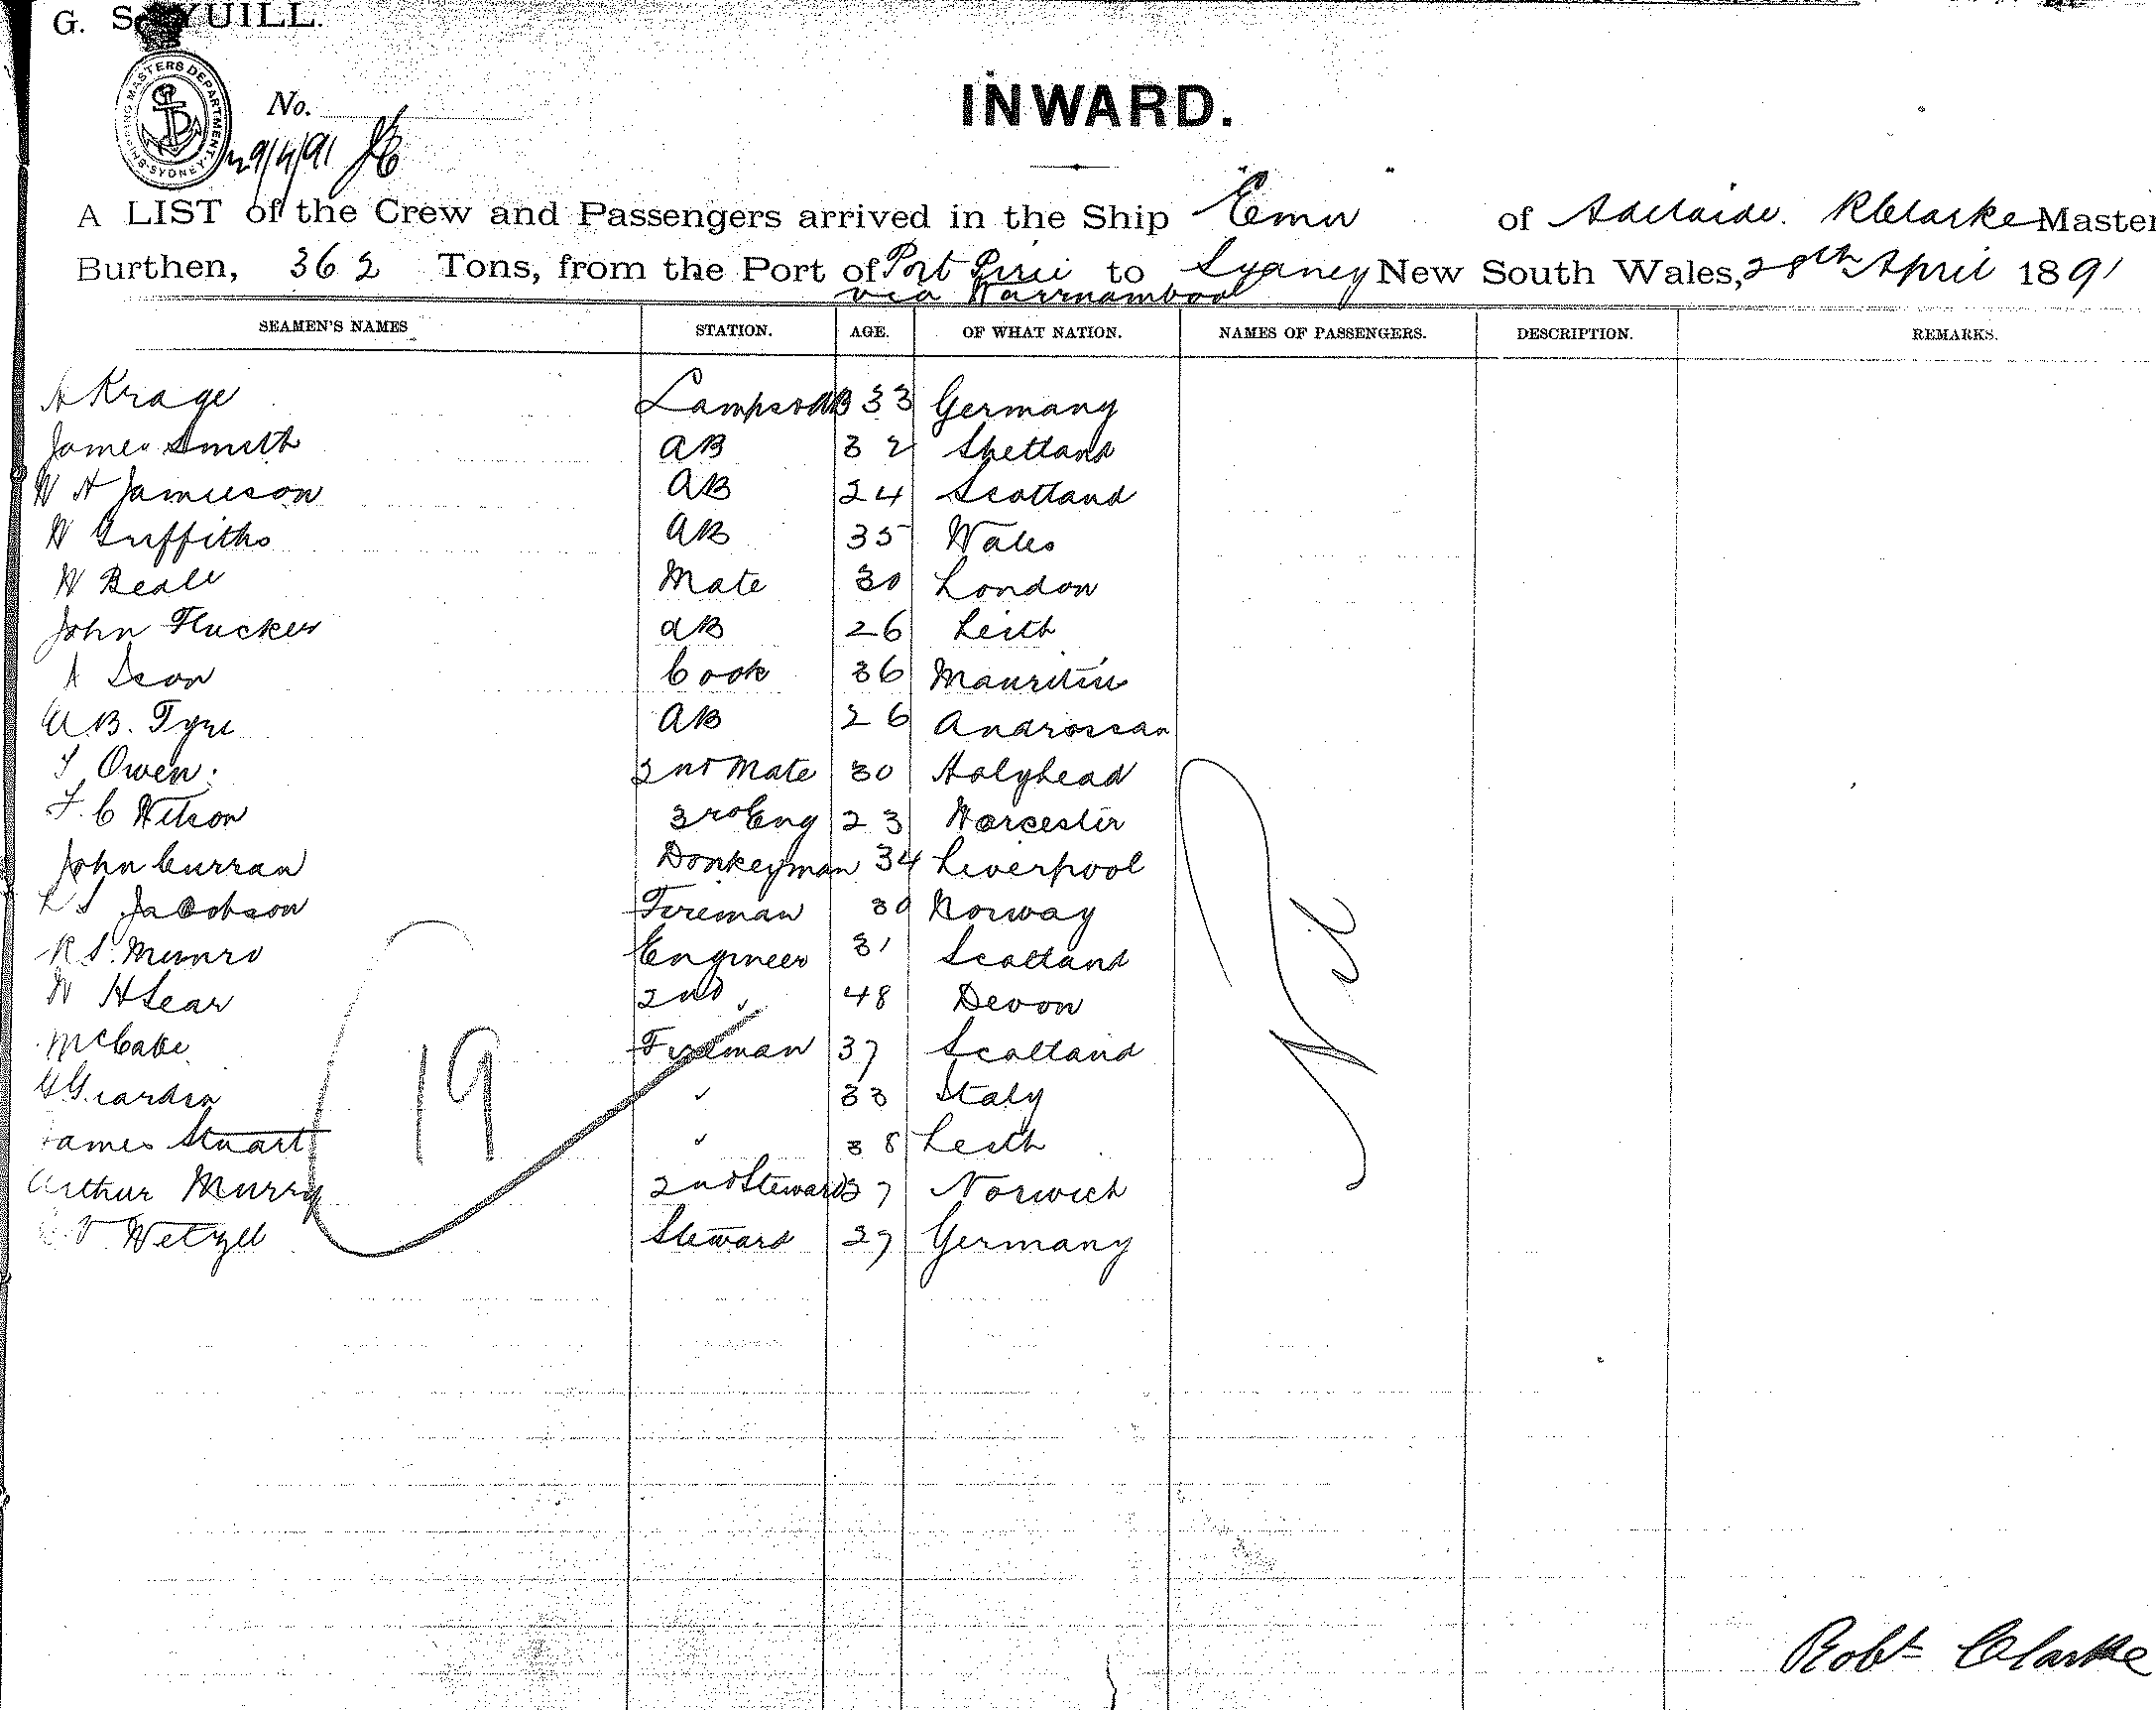 G. S. YUILL.
SHIPPING MASTERS DEPARTMENT. SYDNEY.
No.
29/4/91
INWARD.
A LIST of the Crew and Passengers arrived in the Ship Emu of Adelaide. R Clarke Master
Burthen, 362 Tons, from the Port of Port Pirie to Sydney New South Wales, 28th April 1891
via Warrnambool
SEAMEN'S NAMES STATION. AGE. OF WHAT NATION. NAMES OF PASSENGERS. DESCRIPTION. REMARKS.
A Krage Lamps & AB 33 Germany
James Smith AB 32 Shetland
W A Jamieson AB 24 Scotland
W Griffiths AB 35 Wales
W Beale Mate 30 London
John Flucker AB 26 Leith
A Leon Cook 36 Mauritius
A.B. Tyre AB 26 Androssan
T Owen. 2nd Mate 30 Holyhead
F. C Wilson 3rd Eng 23 Worcester
John Curran Donkeyman 34 Liverpool
L S Jacobson Fireman 30 Norway
R S. Munro Engineer 31 Scotland
W H Lear 2nd " 48 Devon
McCabe Fireman 37 Scotland
G. Giardin " 33 Italy
James Stuart " 38 Leith
Arthur Murry 2nd Steward 27 Norwich
Wetzell Steward 27 Germany
19
Nil
Robt Clarke